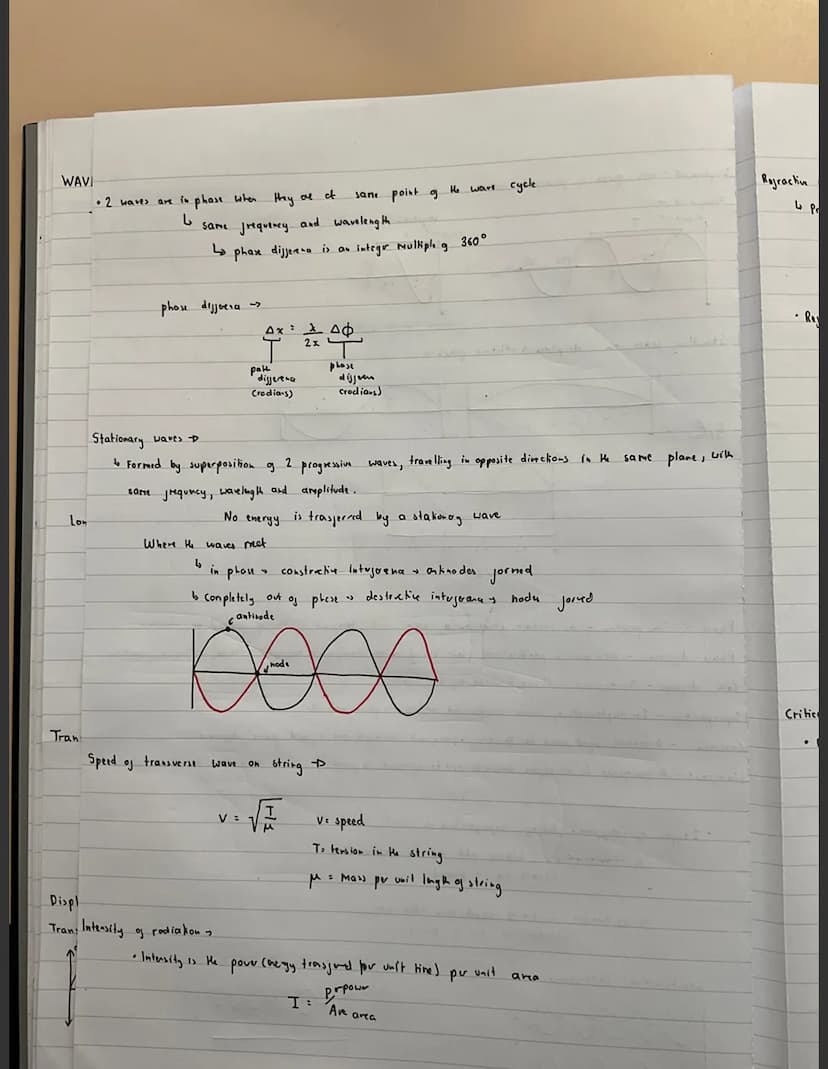 WAV
• 2 waves are in phase when they are at same point of the wave cycle
↳ same frequency and wavelength
↳ phase difference is an integer multiple of 360°
phase difference →
Δx = λ/2π Δφ
path difference (radians)
phase difference (radians)
Stationary waves →
↳ Formed by superposition of 2 progressive waves, travelling in opposite directions in the same plane, with
same frequency, wavelength and amplitude.
No energy is transferred by a stationary wave
Where the waves meet
↳ in phase → constructive interference → antinodes formed
↳ completely out of phase → destructive interference → nodes formed
antinode
node
Speed of transverse wave on string →
V = √T/μ
V = speed
T = tension in the string
μ = mass per unit length of string
Intensity of radiation →
• Intensity is the power (energy transferred per unit time) per unit area
I = P ← power / A ← area
Lon
Tran
Displ
Tran
Refraction
↳ Pr
• Re
Critic